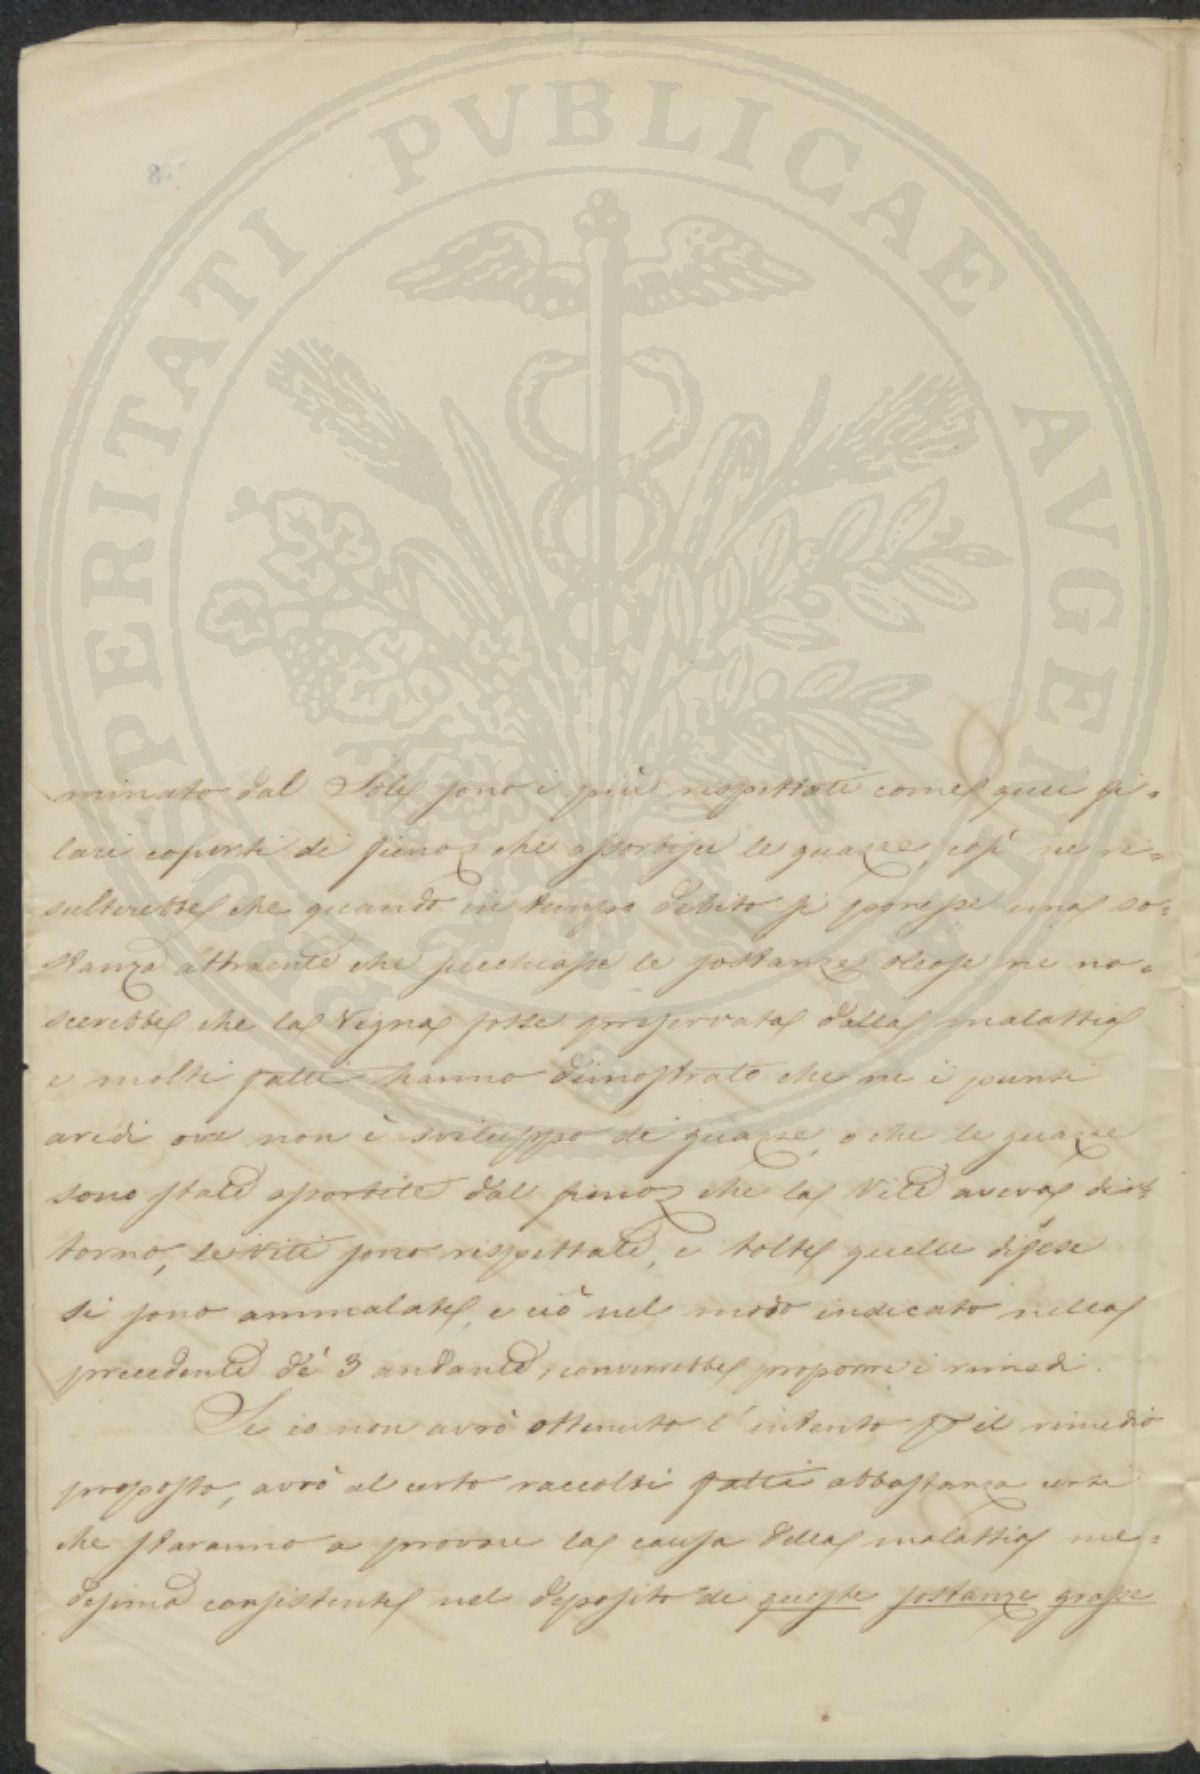 PROSPERITATI PVBLICAE AVGENDAE
minato dal Sole sono i più rispettati come quei fi=
lari coperti di fieno che assorbisce le guazze, così ne ri=
sulterebbe che quando in tempo debito si ponesse una so=
stanza attraente che succhiasse le sostanze oleose ne na=
scerebbe che la Vigna fosse preservata dalla malattia
e molti fatti hanno dimostrato che ne i punti
aridi ove non è sviluppo di guazze, o che le guazze
sono state assorbite dal fieno che la Vite aveva din=
torno, le viti sono rispettate, e tolte quelle difese
si sono ammalate, e ciò nel modo indicato nella
precedente de' 3 andante, converrebbe proporre i rimedi.
Se io non avrò ottenuto l'intento p il rimedio
proposto, avrò al certo raccolti fatti abbastanza certi
che staranno a provare la causa della malattia me=
desima consistente nel deposito di queste sostanze grasse